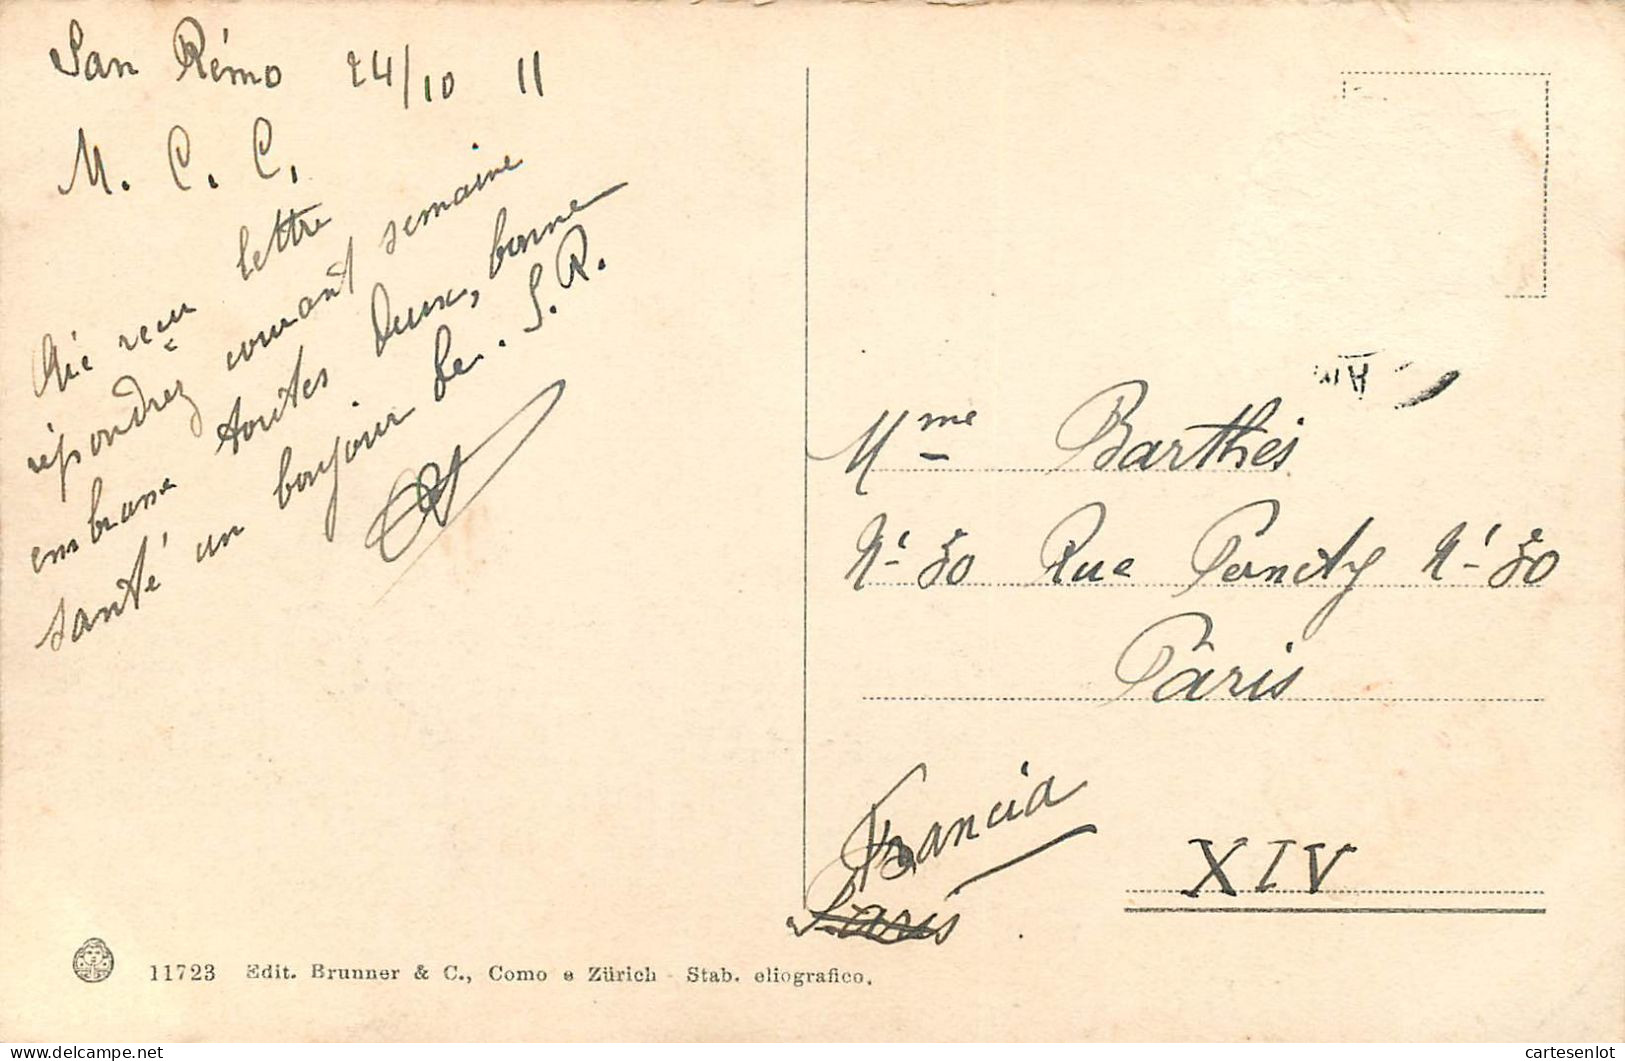 San Rémo 24/10 11
M. C. C.
Ai reçu lettre
répondrez courant semaine
embrasse toutes deux, bonne
santé un bonjour de. S. R.
Mme Barthés
N° 50 Rue Pernety N° 50
Pâris
Francia
Paris
XIV
11723 Edit. Brunner & C., Como e Zürich - Stab. eliografico.
cartesenlot